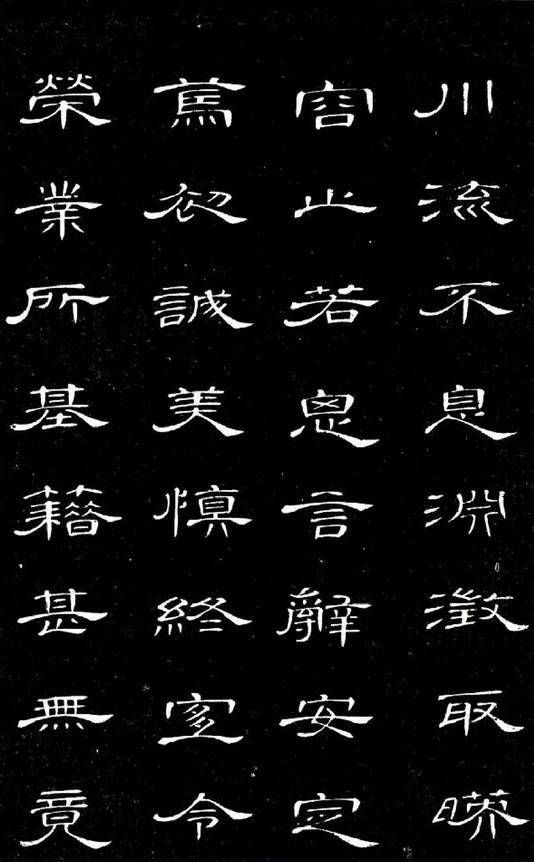 川流不息淵澂取暎
容止若思言辭安定
篤初誠美慎終宜令
榮業所基藉甚無竟